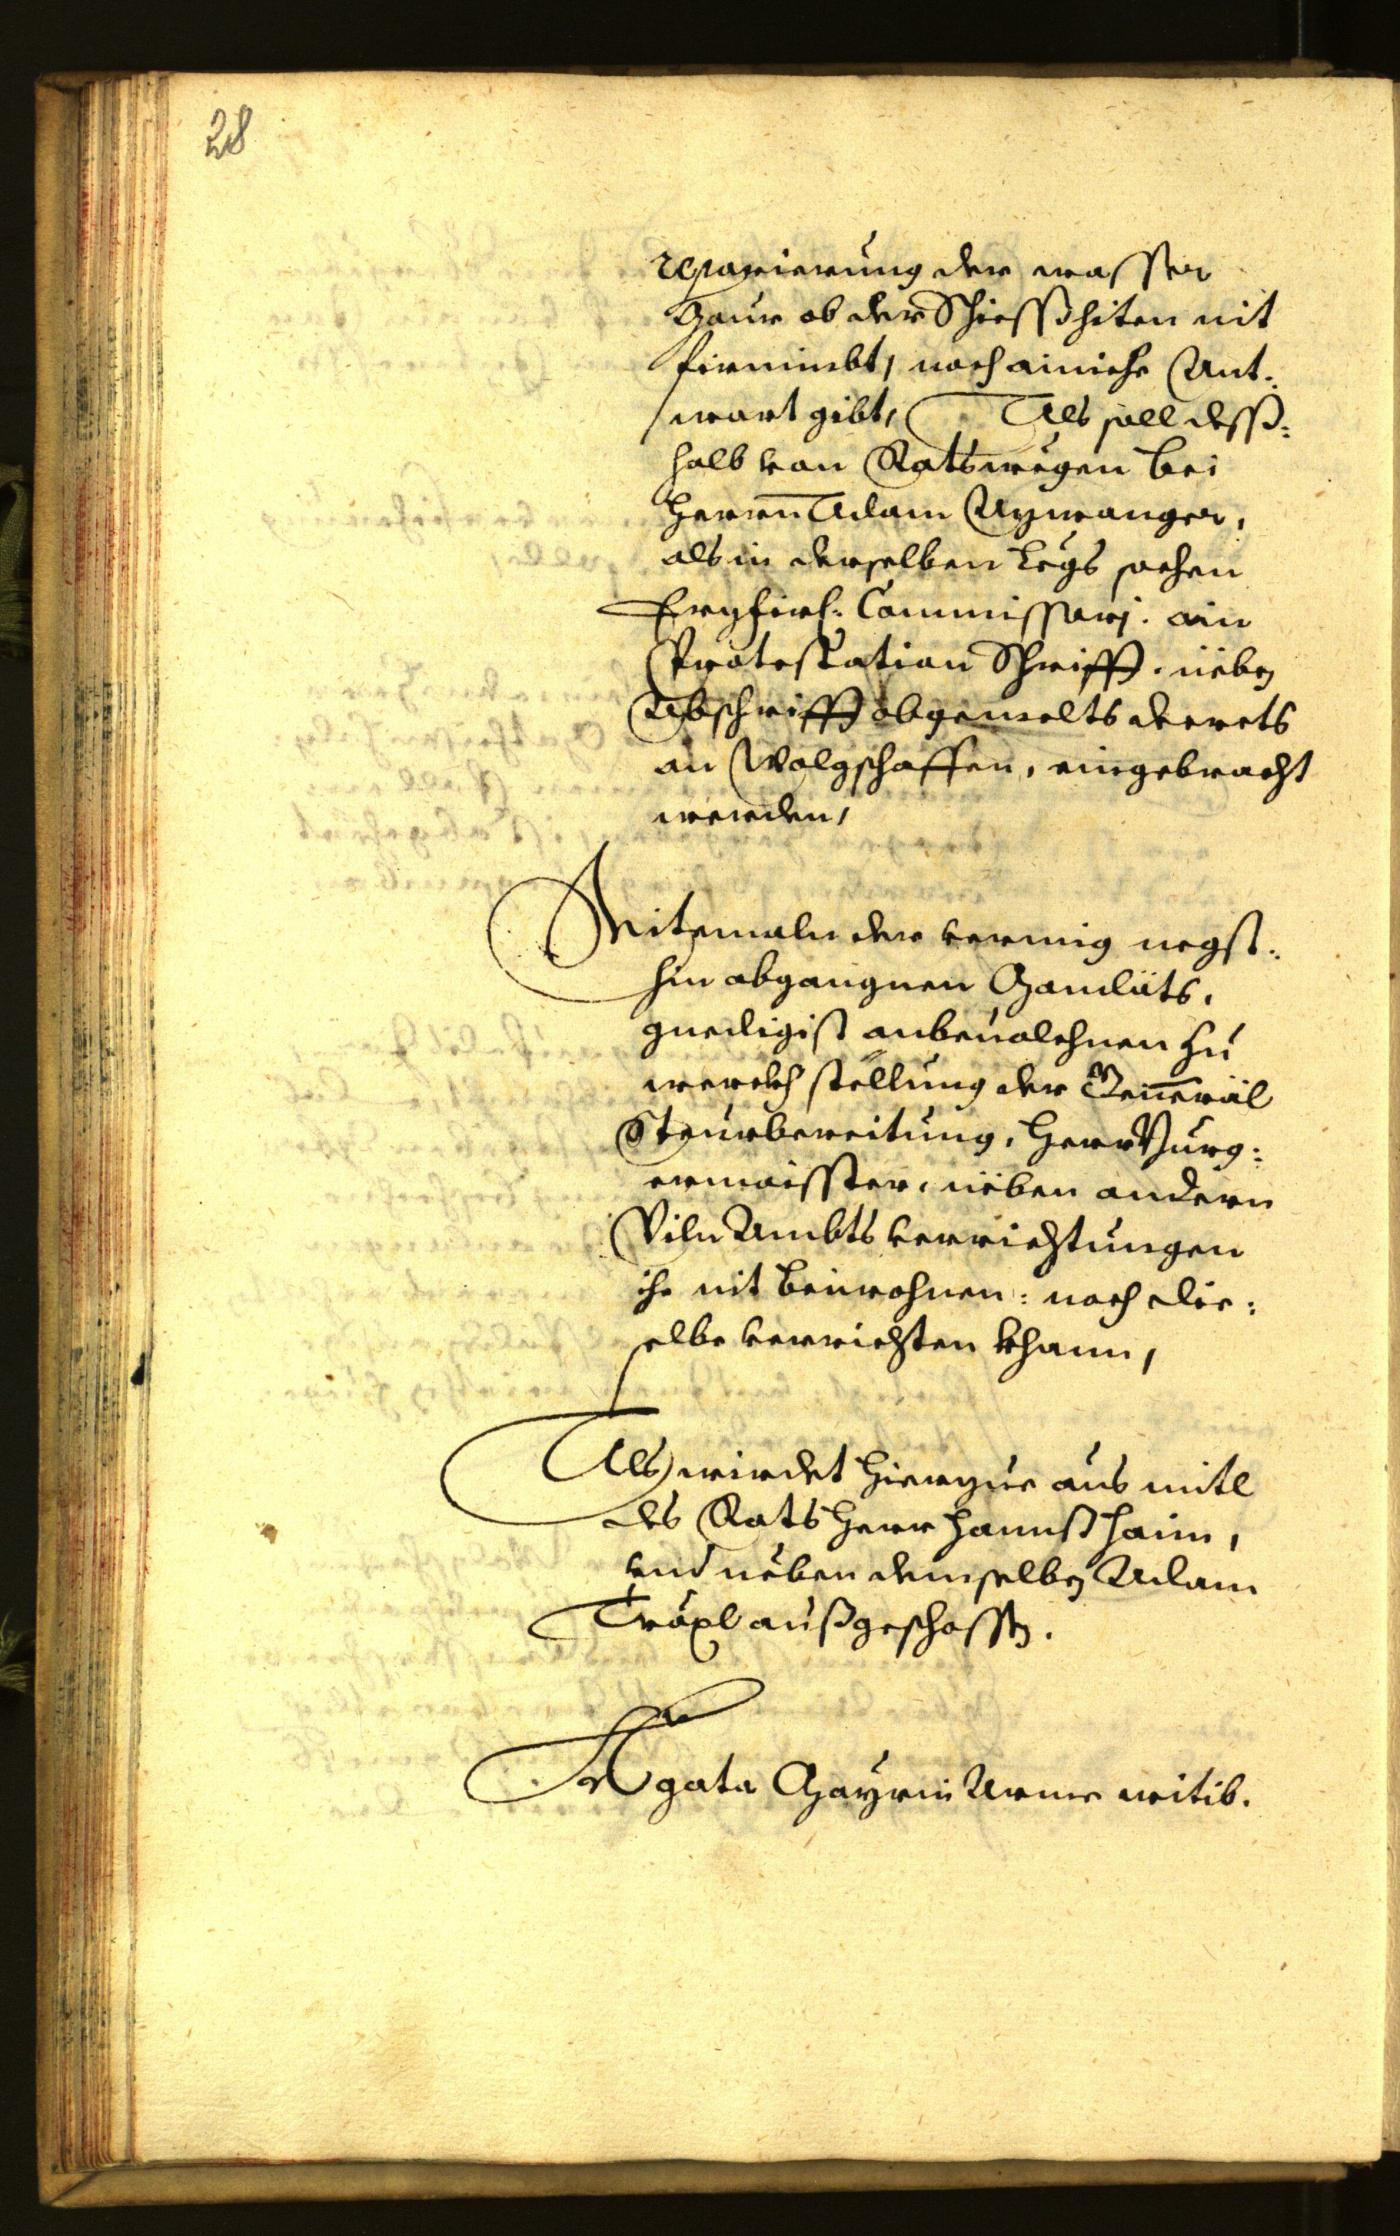 28
reparierung der wasser
Gaur ob der Schiesshiten nit
firnimbt, noch ainiche Ant:
wort gibt, Als soll dess:
halb von Rats wegen bei
Herrn Adam
als in derselben Legs sachen
Erzfirf: Commissari. ain
Protestation Schrifft. neben
Abschrifft obgemelts decrets
an Wolgschaffen, eingebracht
werden,
Seitemaln der vermig negst:
hin abgangnen Mandats,
gnedigist anbeuolchnen Zu
werckh stellung der General
Steurbereitung, Herr Burg:
ermaisster, neben andern
Viln Ambts verrichtungen
ihe nit beiwohnen: noch die:
selbe verrichten khann,
Als wirdet hierzue aus mitl
des Rats Herr Hannss Haim,
vnd neben demselben Adam
Tröxl außgeschossen.
Agata Mayrin Arme witib.